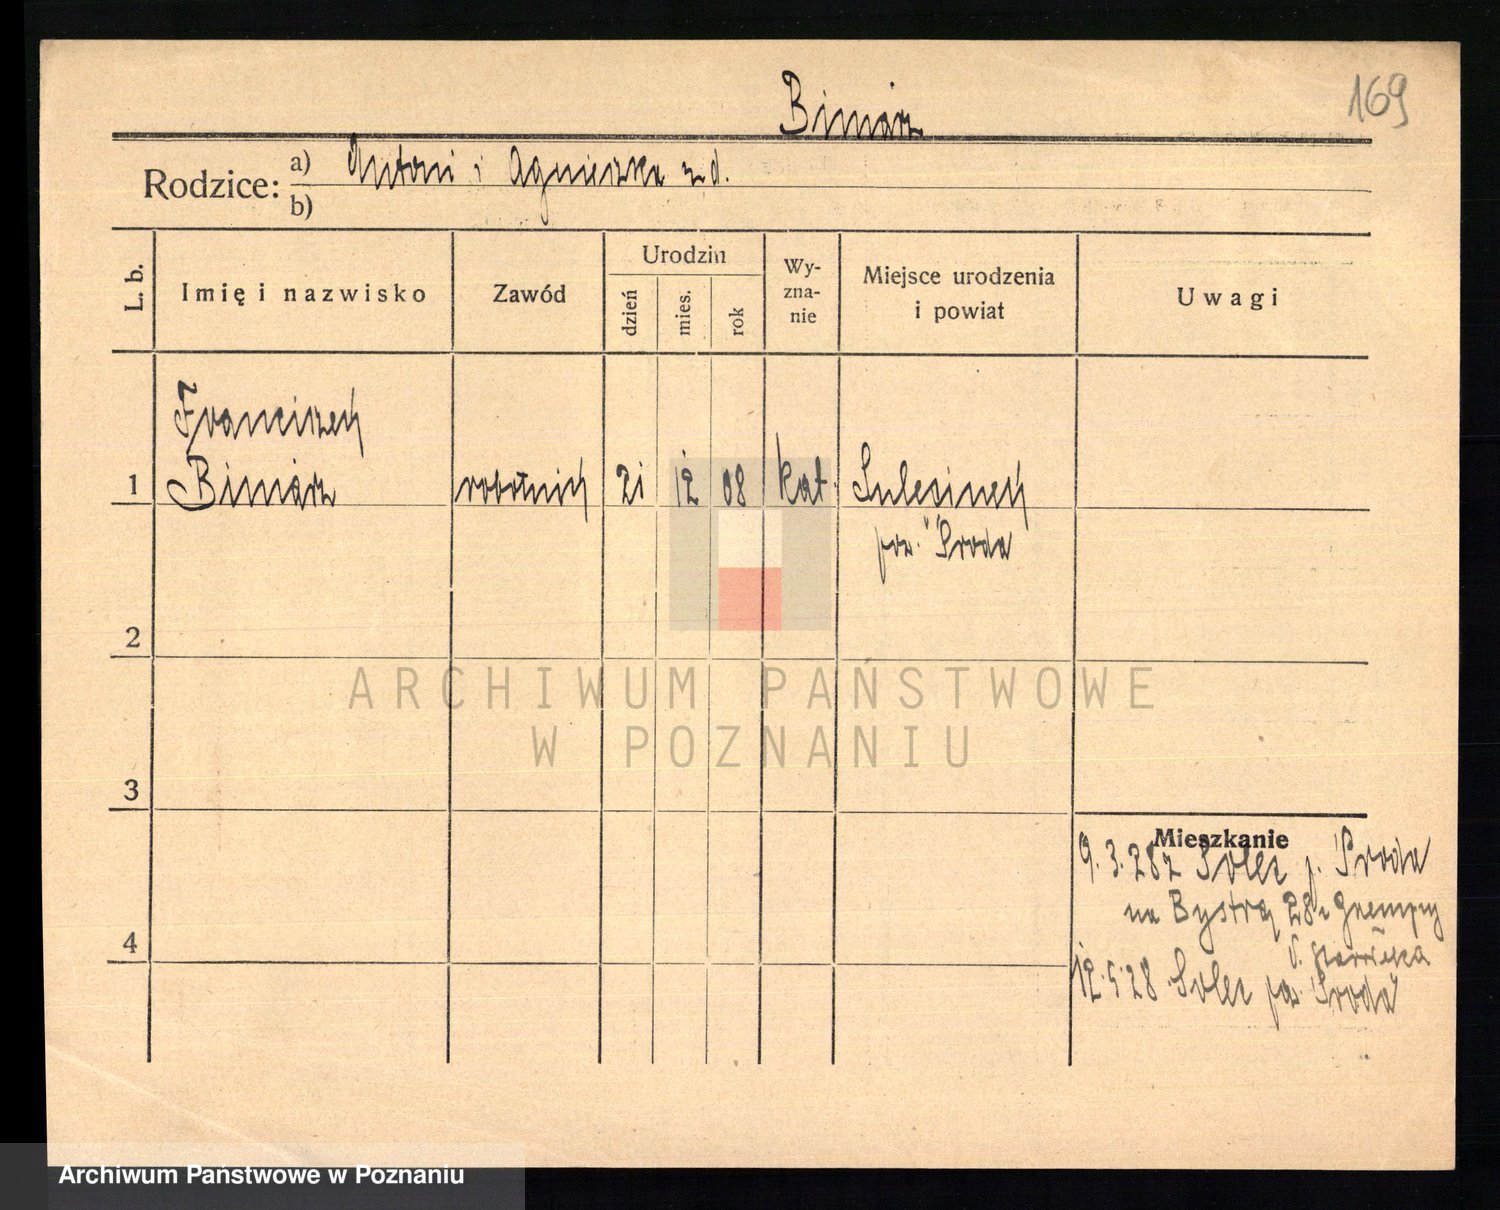 169
Biniarz
Rodzice: a) Antoni i Agnieszka z d.
b)
L. b.
Imię i nazwisko
Zawód
Urodzin
dzień
mies.
rok
Wy-
zna-
nie
Miejsce urodzenia
i powiat
Uwagi
Franciszek
1 Biniarz robotnik 21 12 08 kat. Sulecinek
pow. Środa
2
3
4
Mieszkanie
9.3.28 z Solec p. Środa
na Bystrą 28 z
12.5.28 Solec pow. Środa
ARCHIWUM PAŃSTWOWE
W POZNANIU
Archiwum Państwowe w Poznaniu